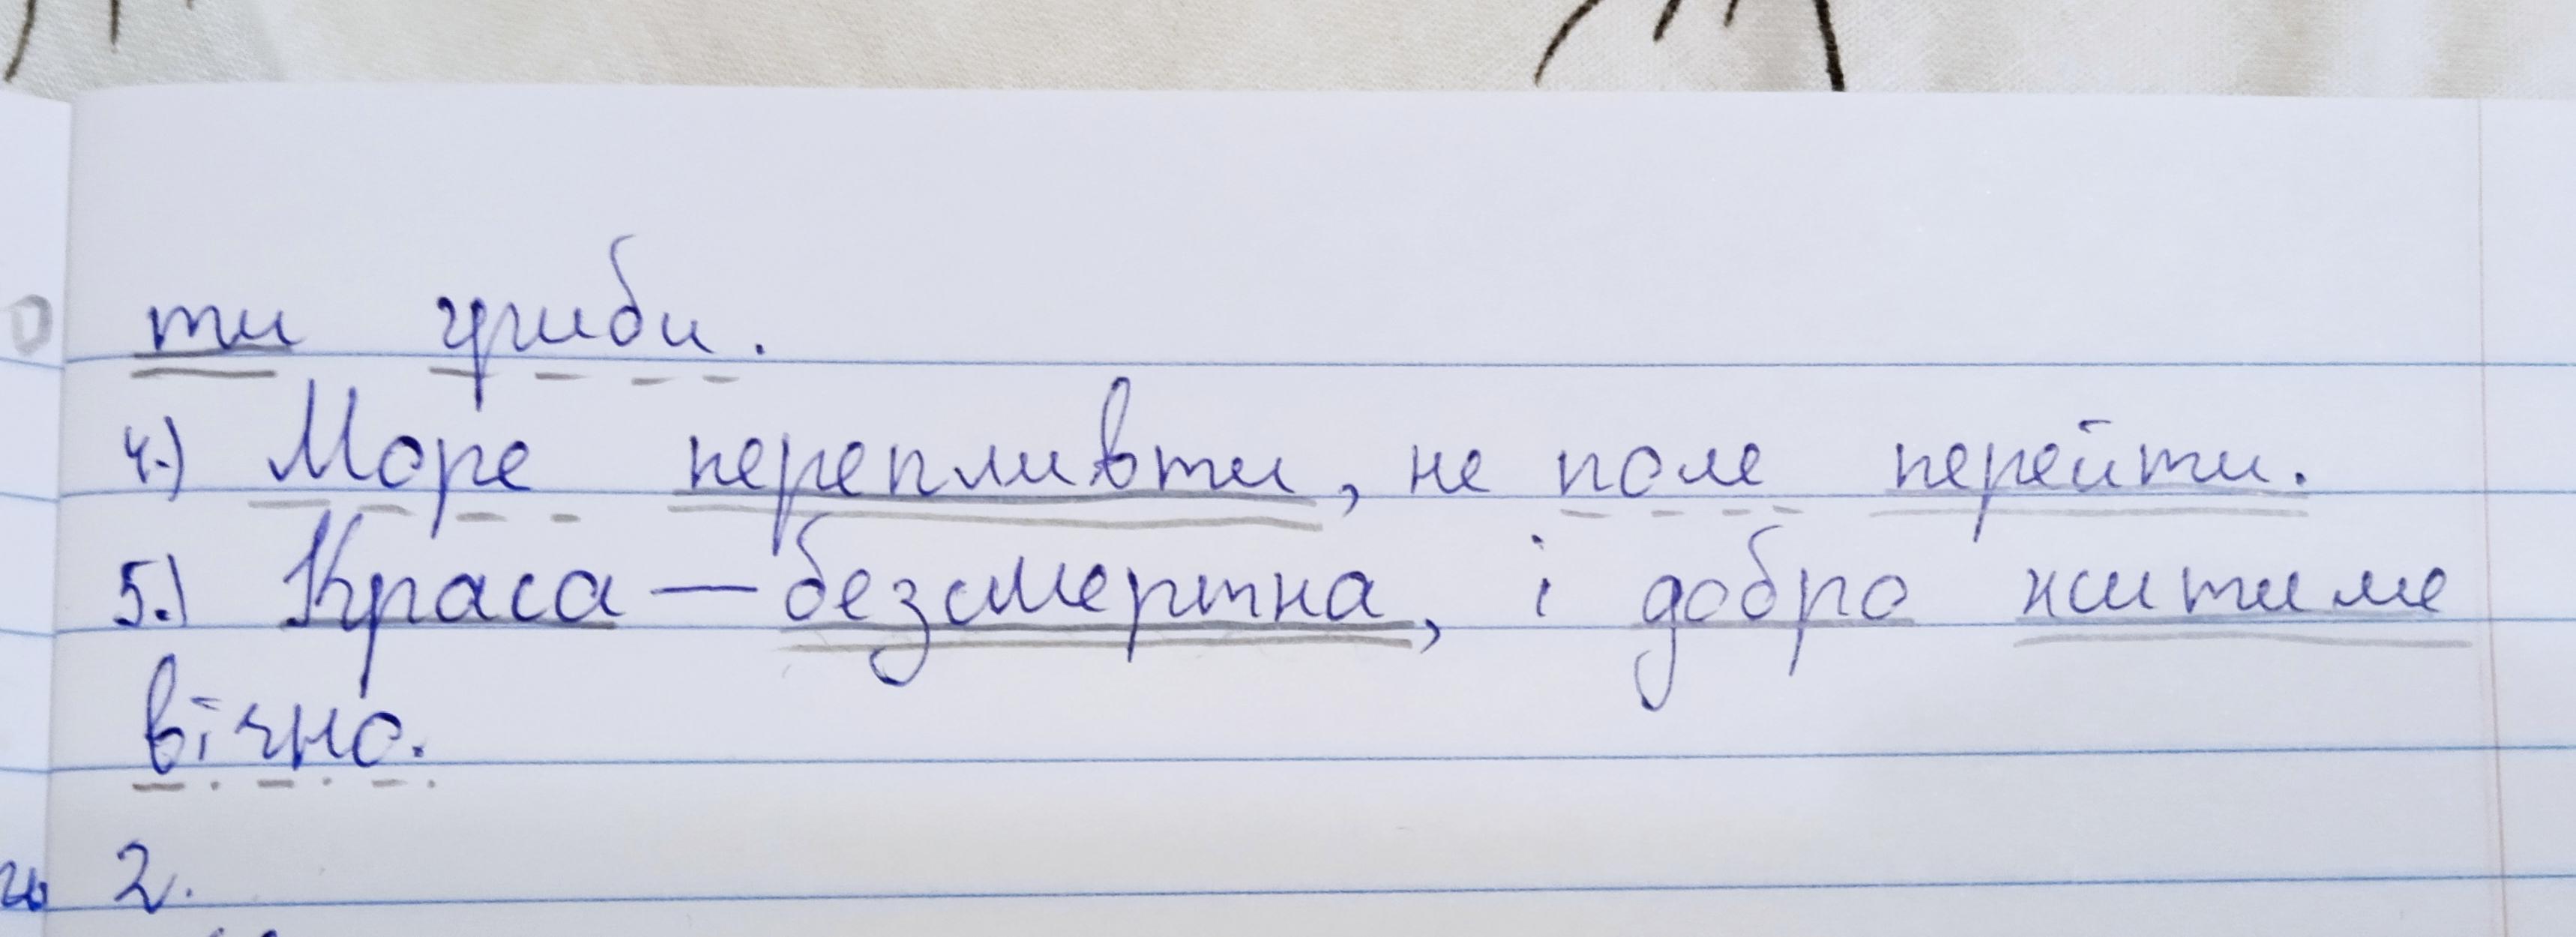 ти гриби.
4.) Море перепливти, не поле перейти.
5.) Краса — безсмертна, і добро житиме
вічно.
2.